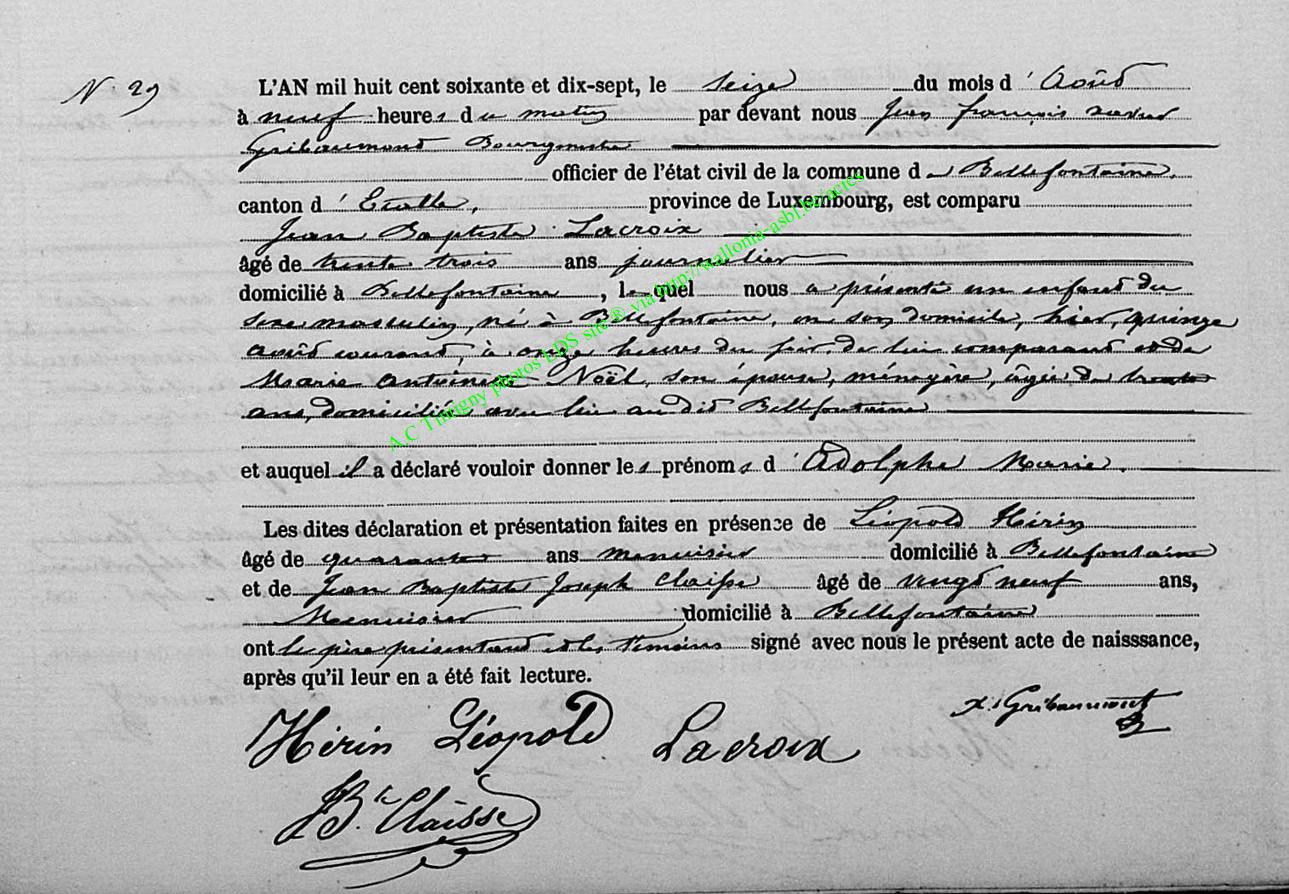 N. 29
L'AN mil huit cent soixante et dix-sept, le seize du mois d'Août
à neuf heures du matin par devant nous Jean françois xavier
Gribaumont Bourgmestre
officier de l'état civil de la commune de Bellefontaine,
canton d'Etalle, province de Luxembourg, est comparu
Jean Baptiste Lacroix
âgé de trente trois ans journalier
domicilié à Bellefontaine, lequel nous a présenté un enfant du
sexe masculin, né à Bellefontaine, en son domicile, hier, quinze
août courant, à onze heures du soir, de lui comparant et de
Marie Antoinette Noël, son épouse, ménagère, âgée de trente
ans, domiciliée avec lui au dit Bellefontaine
et auquel il a déclaré vouloir donner les prénoms d'Adolphe Marie.
Les dites déclaration et présentation faites en présence de Léopold Hérin
âgé de quarante ans menuisier domicilié à Bellefontaine
et de Jean Baptiste Joseph Claisse âgé de vingt neuf ans,
Menuisier domicilié à Bellefontaine
ont le père présentant et les témoins signé avec nous le présent acte de naisssance,
après qu'il leur en a été fait lecture.
x. Gribaumont
Hérin Léopold Lacroix
JBte Claisse
A.C Tintigny photos LDS site © via http://wallonia-asbl.be/actes